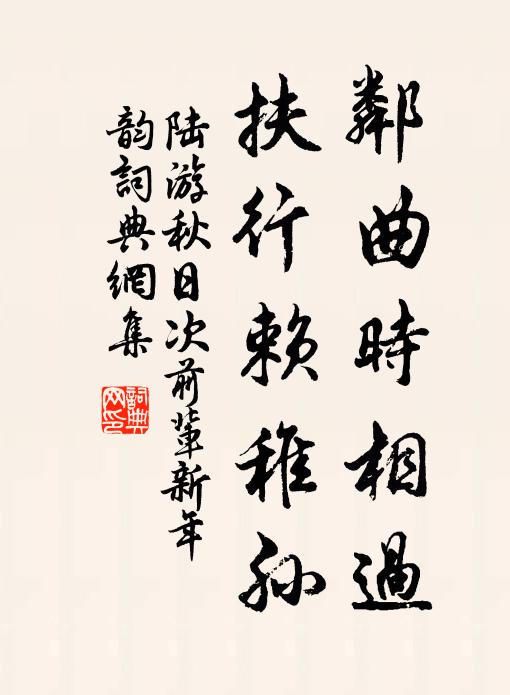 鄰曲時相過
扶行賴稚孫
陸游秋日次前輩新年
韵詞典網集
詞典網印